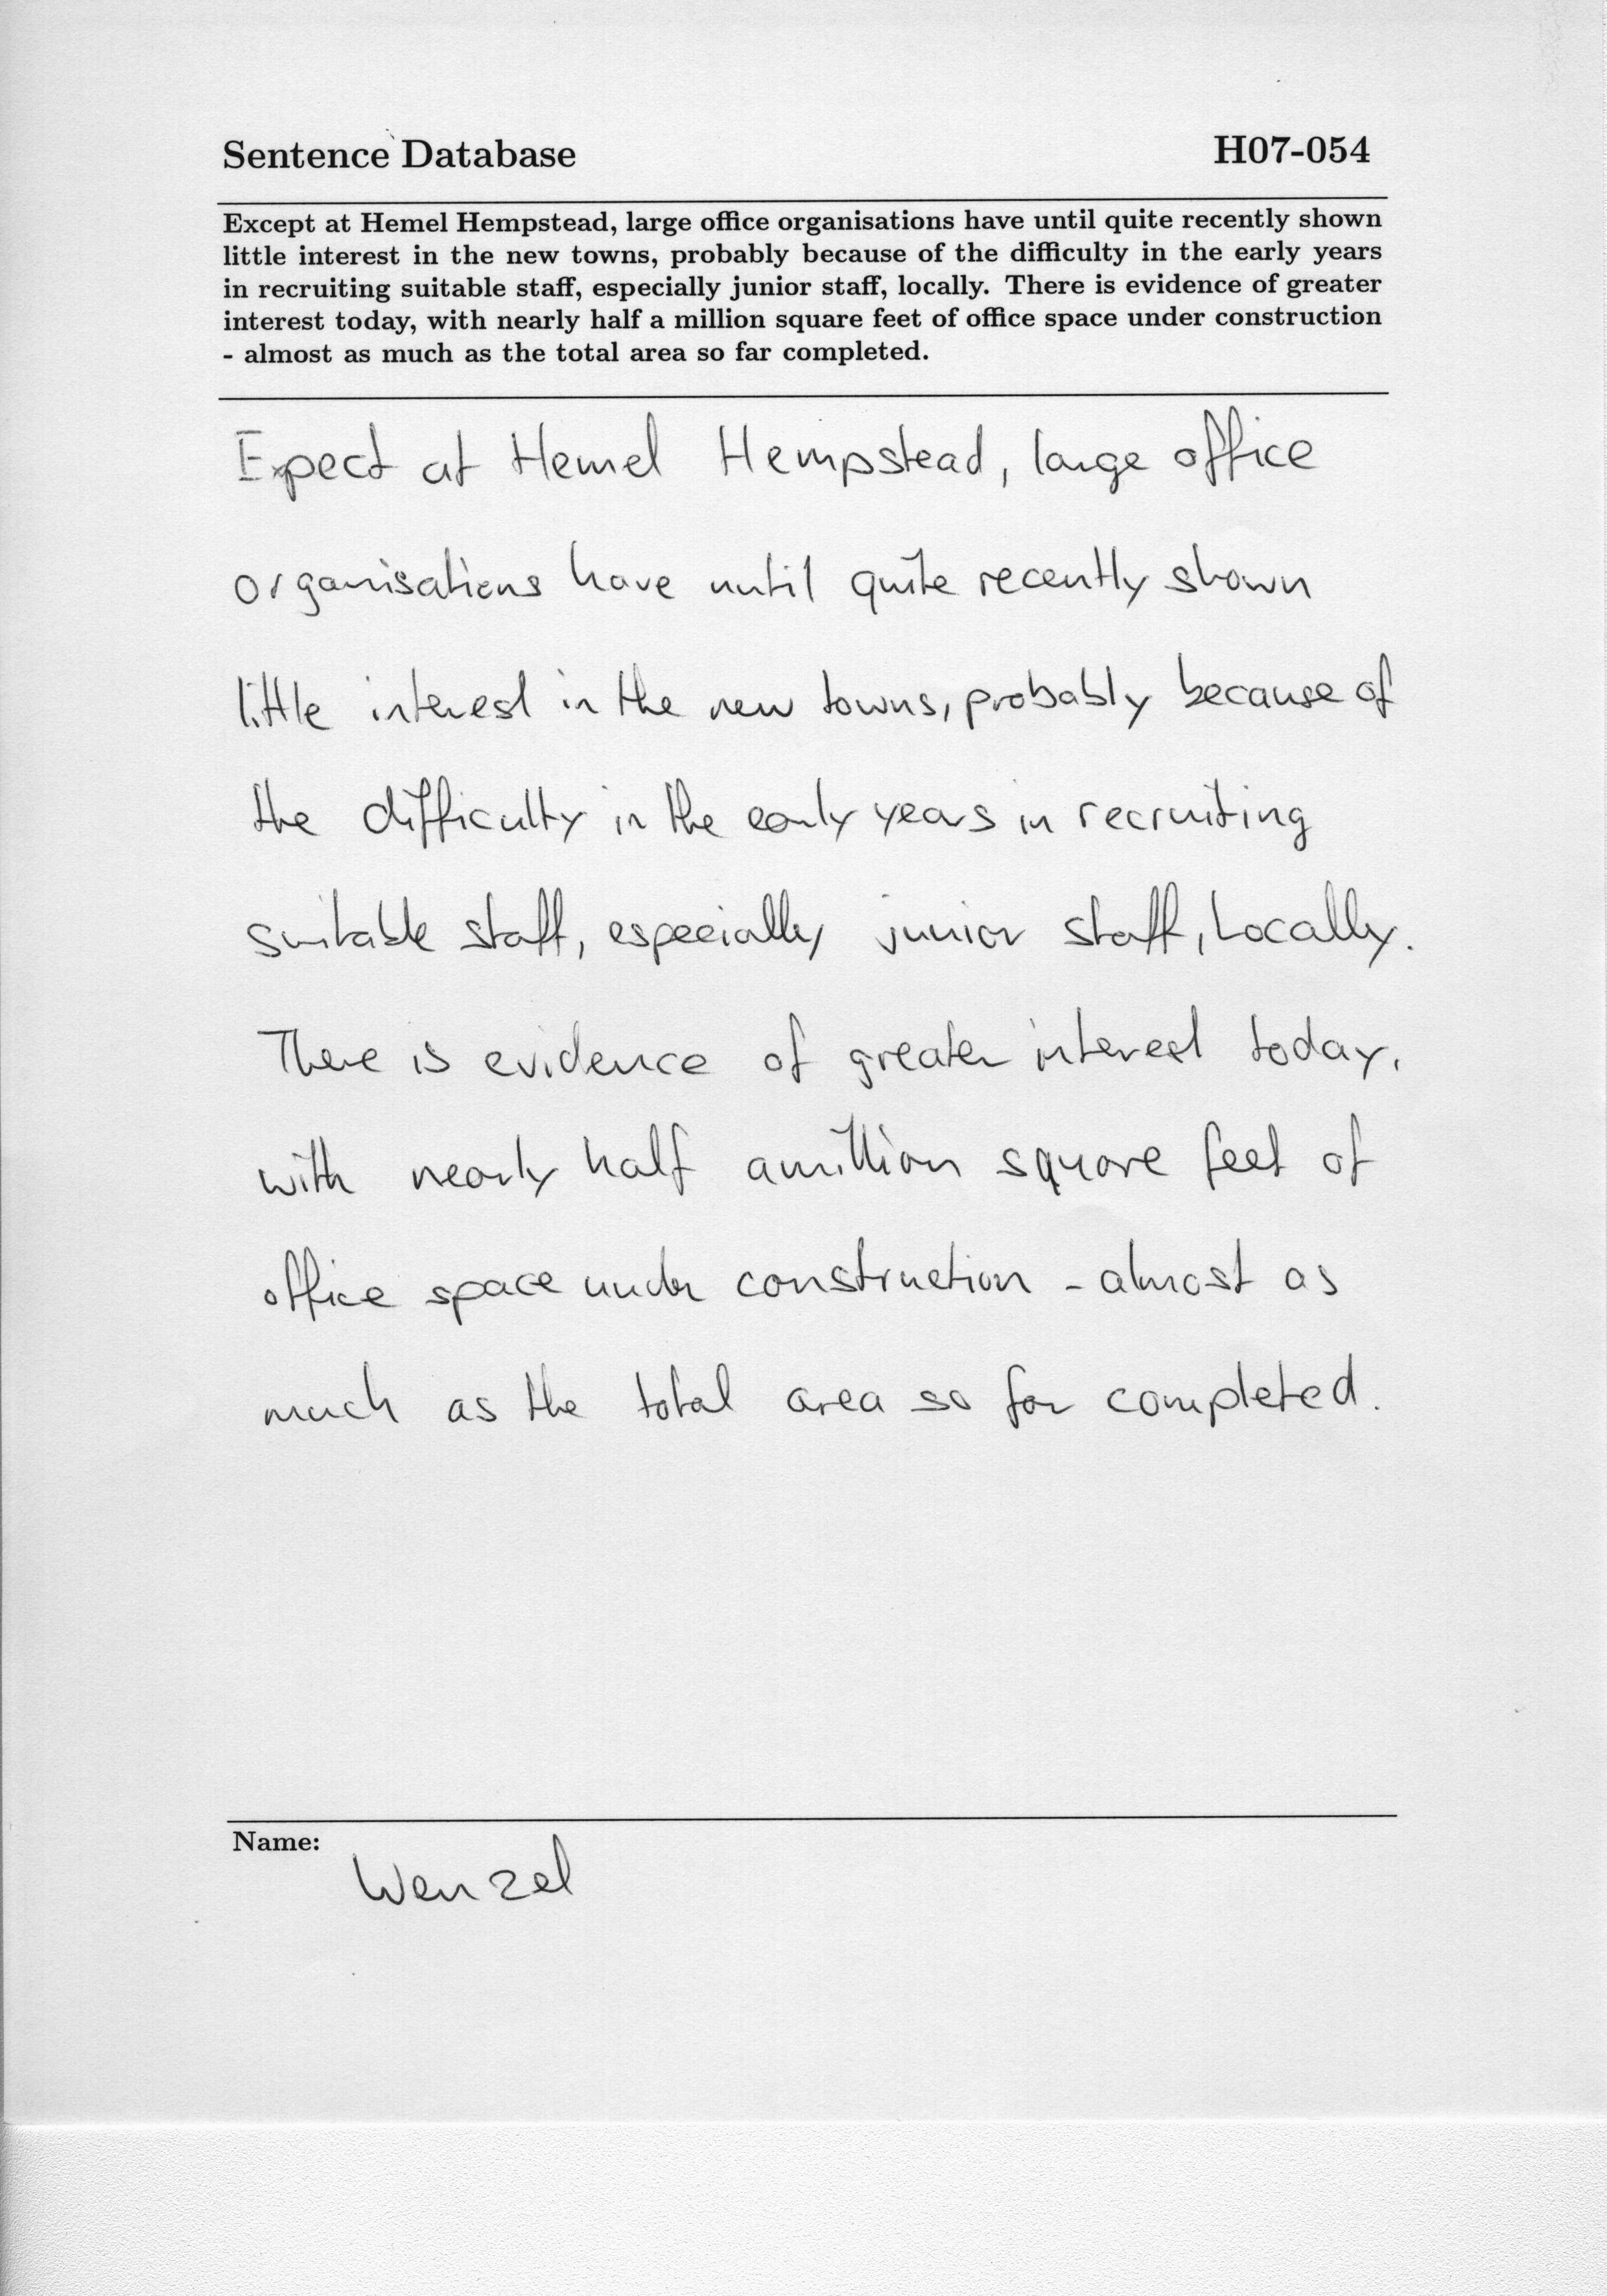 Sentence Database H07-054
Except at Hemel Hempstead, large office organisations have until quite recently shown
little interest in the new towns, probably because of the difficulty in the early years
in recruiting suitable staff, especially junior staff, locally. There is evidence of greater
interest today, with nearly half a million square feet of office space under construction
- almost as much as the total area so far completed.
Expect at Hemel Hempstead, large office
organisations have until quite recently shown
little interest in the new towns, probably because of
the difficulty in the early years in recruiting
suitable staff, especially junior staff, Locally.
There is evidence of greater interest today,
with nearly half a million square feet of
office space under construction - almost as
much as the total area so far completed.
Name:
Wenzel